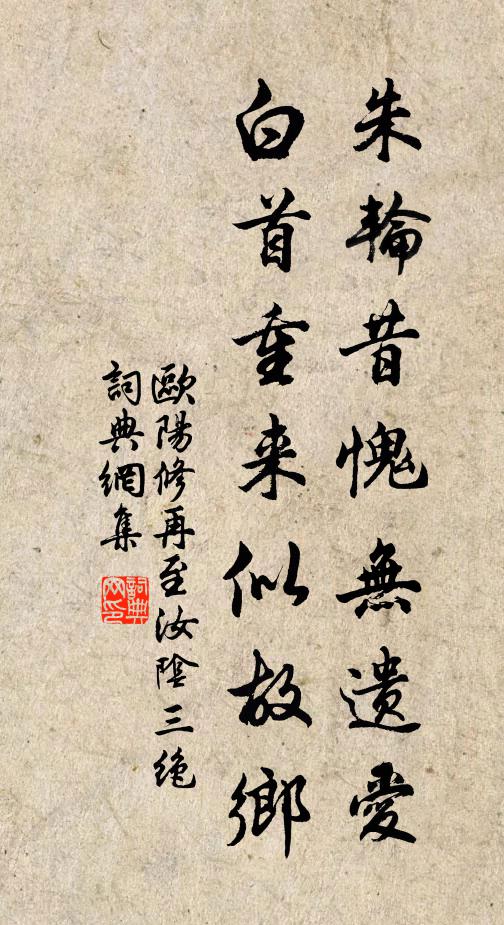 朱輪昔愧無遺愛
白首重来似故鄉
歐陽修再至汝陰三絶
詞典網集
詞典
网印